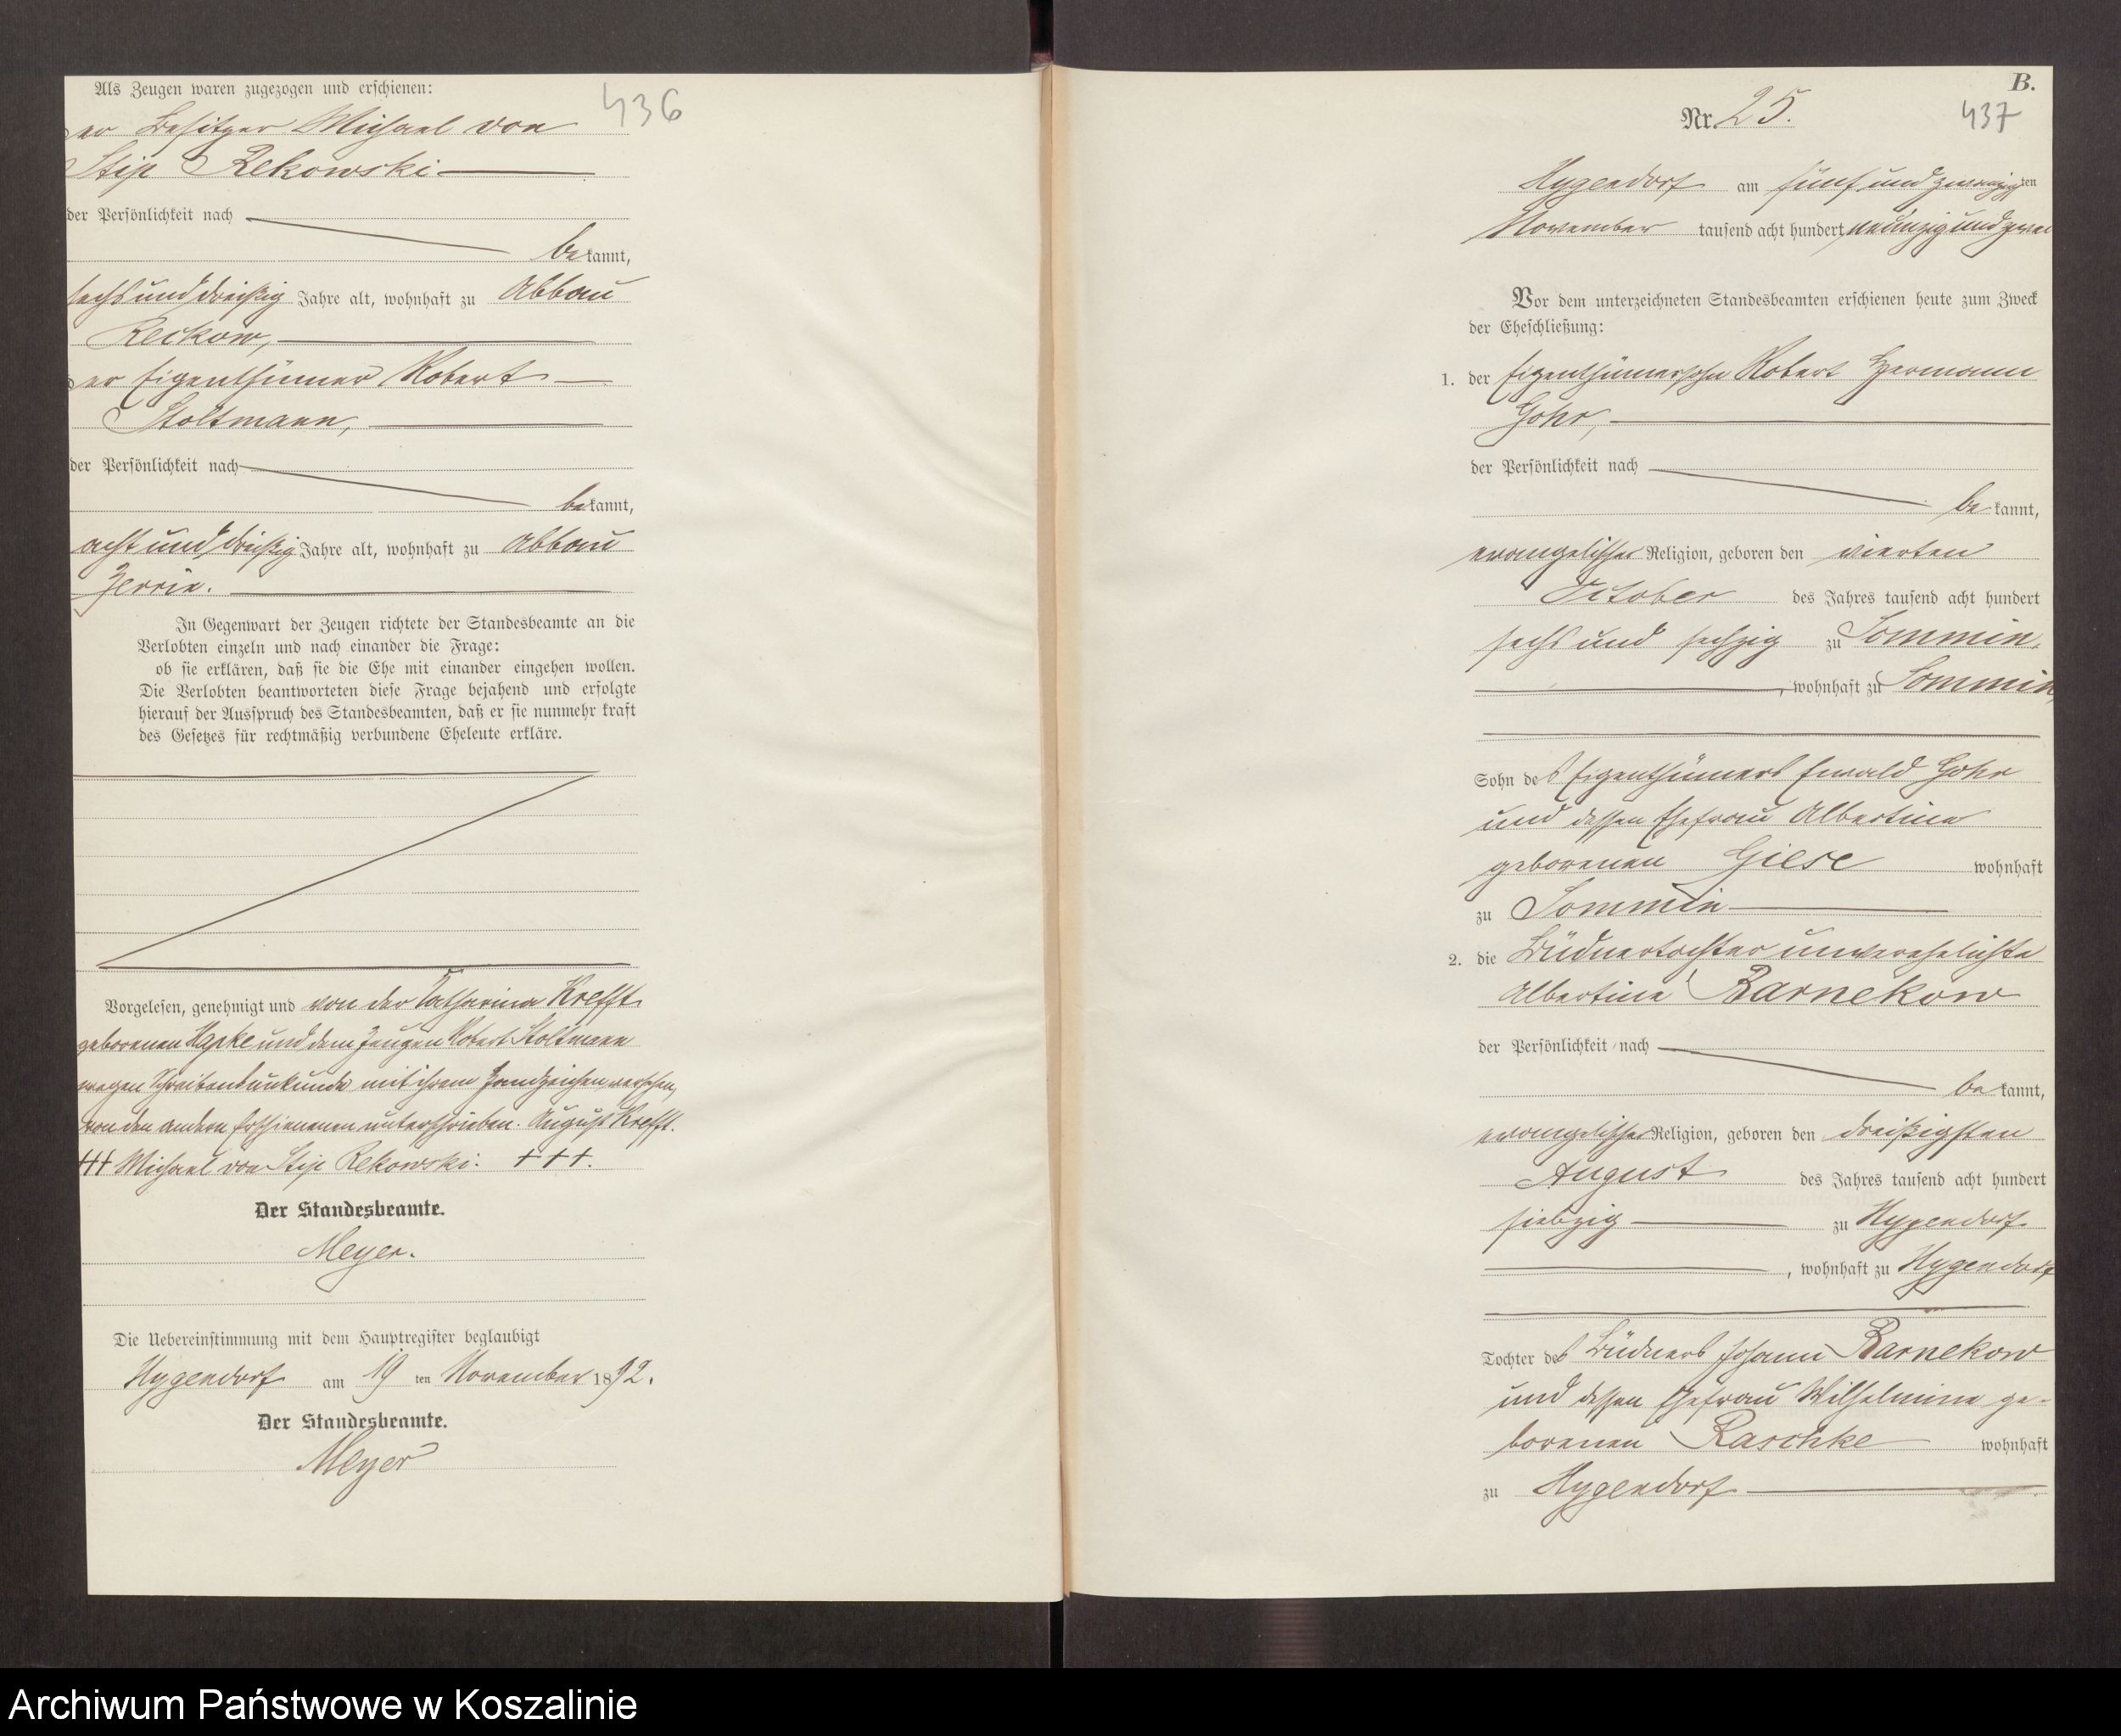 Als Zeugen waren zugezogen und erschienen:
436
er Besitzer Michael von
Stip Rekowski
der Persönlichkeit nach
be kannt,
sechs und dreißig Jahre alt, wohnhaft zu Abbau
Reckow,
er Eigenthümer Robert
Stoltmann,
der Persönlichkeit nach
be kannt,
acht und dreißig Jahre alt, wohnhaft zu Abbau
Zerrin.
In Gegenwart der Zeugen richtete der Standesbeamte an die
Verlobten einzeln und nach einander die Frage:
ob sie erklären, daß sie die Ehe mit einander eingehen wollen.
Die Verlobten beantworteten diese Frage bejahend und erfolgte
hierauf der Ausspruch des Standesbeamten, daß er sie nunmehr kraft
des Gesetzes für rechtmäßig verbundene Eheleute erkläre.
Vorgelesen, genehmigt und von der Catharina Krefft
geborenen Hapke und dem Zeugen Robert Stoltmann
wegen Schreibensunkunde mit ihrem Handzeichen versehen,
von den andern Erschienenen unterschrieben. August Krefft.
+++ Michael von Stip Rekowski. +++.
Der Standesbeamte.
Meyer.
Die Uebereinstimmung mit dem Hauptregister beglaubigt
Hygendorf am 19 ten November 1892.
Der Standesbeamte.
Meyer
B.
Nr. 25.
437
Hygendorf am fünf und zwanzigsten
November tausend acht hundert neunzig und zwei
Vor dem unterzeichneten Standesbeamten erschienen heute zum Zweck
der Eheschließung:
1. der Eigenthümersohn Robert Hermann
Gohr,
der Persönlichkeit nach
be kannt,
evangelischer Religion, geboren den vierten
October des Jahres tausend acht hundert
sechs und sechzig zu Sommin,
, wohnhaft zu Sommin,
Sohn des Eigenthümers Ewald Gohr
und dessen Ehefrau Albertine
geborenen Giese wohnhaft
zu Sommin
2. die Büdnertochter unverehelichte
Albertine Barnekow
der Persönlichkeit nach
be kannt,
evangelischer Religion, geboren den dreißigsten
August des Jahres tausend acht hundert
siebzig zu Hygendorf
, wohnhaft zu Hygendorf
Tochter des Büdners Johann Barnekow
und dessen Ehefrau Wilhelmine ge-
borenen Raschke wohnhaft
zu Hygendorf
Archiwum Państwowe w Koszalinie